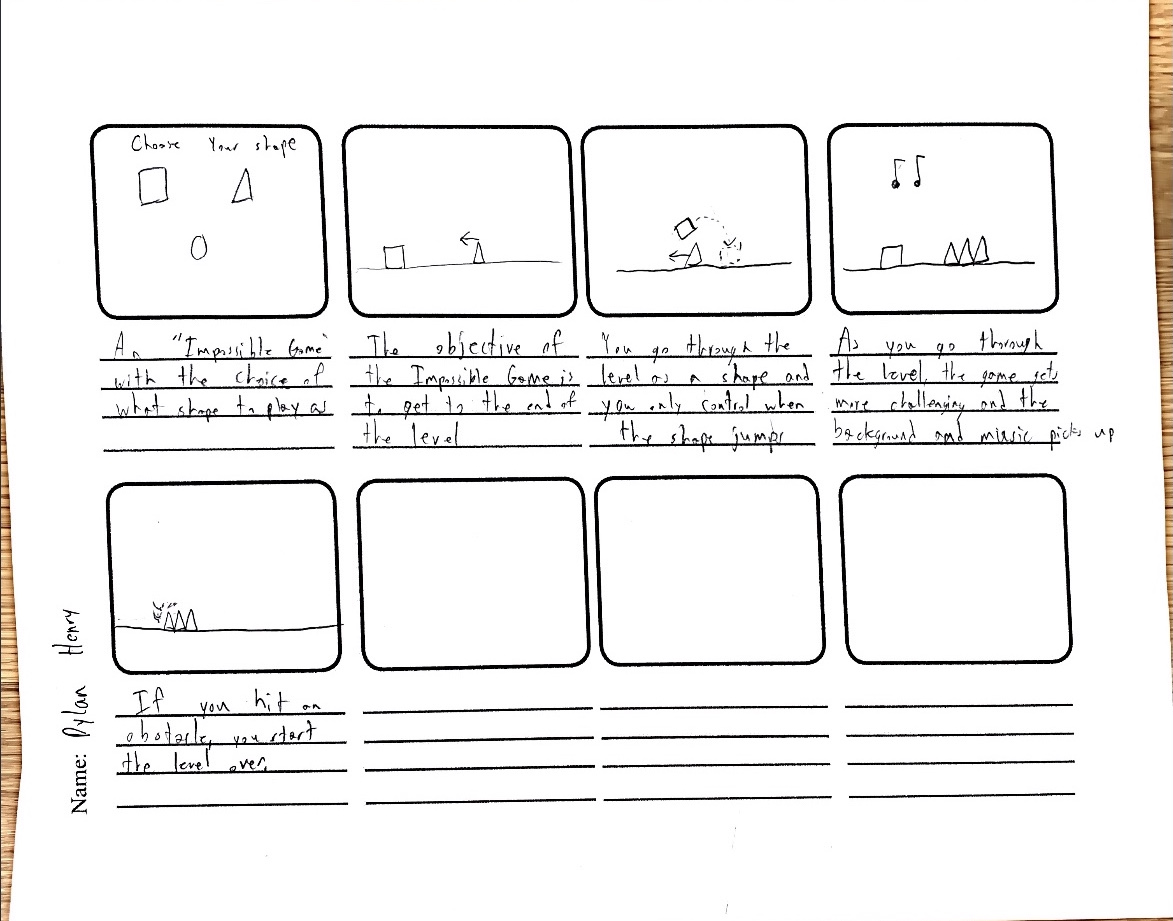 Choose Your shape
An "Impossible Game"
with the choice of
what shape to play as
The objective of
the Impossible Game is
to get to the end of
the level
You go through the
level as a shape and
you only control when
the shape jumps
As you go through
the level, the game gets
more challenging and the
background and music picks up
If you hit an
obstacle, you start
the level over.
Name: Dylan Henry